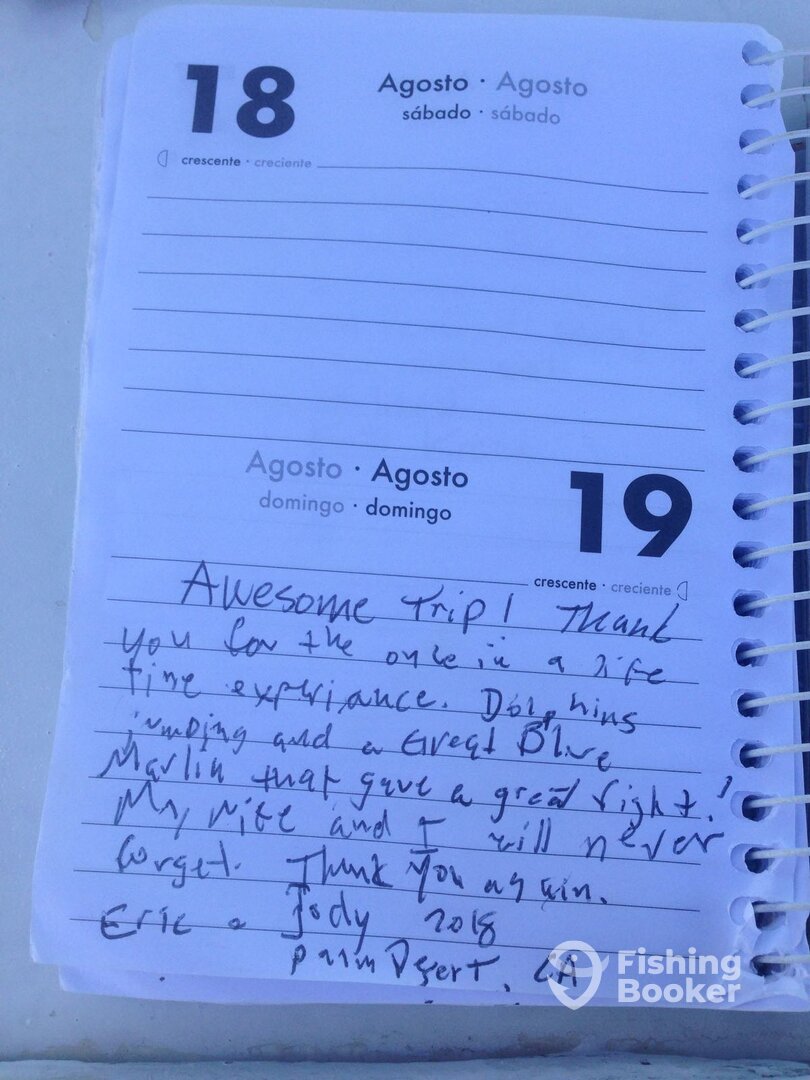 18
Agosto · Agosto
sábado · sábado
crescente · creciente
Agosto · Agosto
domingo · domingo
19
crescente · creciente
Awesome Trip! Thank
you for the once in a life
time experiance. Dolphins
jumping and a Great Blue
Marlin that gave a great fight!
My wife and I will never
forget. Thank you again.
Eric & Jody 2018
Palm Desert, CA
Fishing
Booker